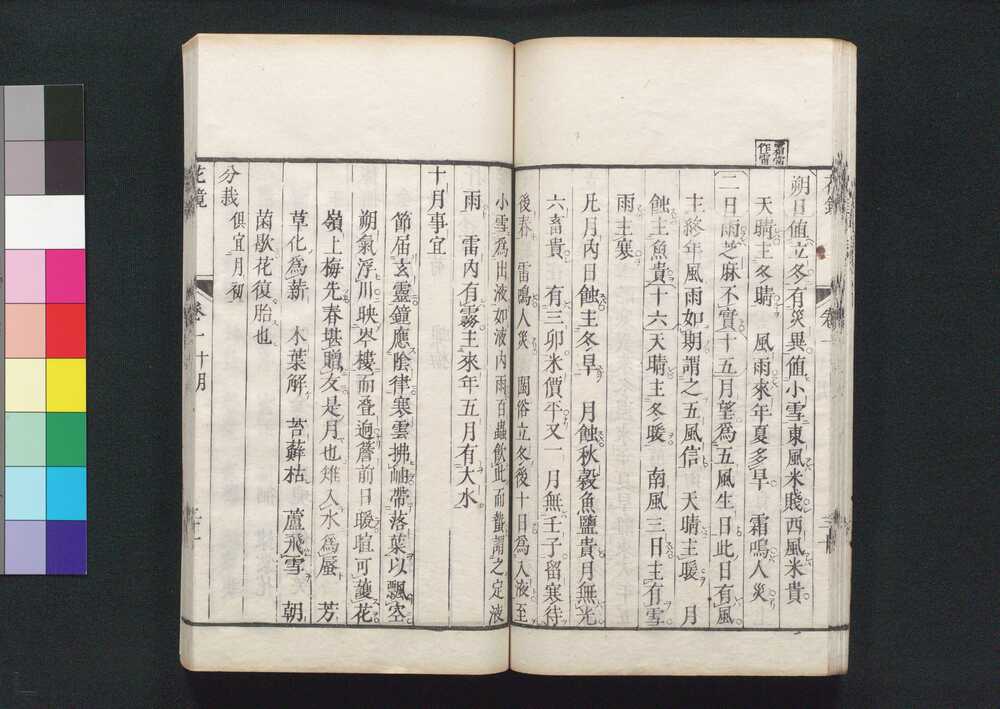 霜當
作雷
朔日値立冬有災異値小雪東風米賤西風米貴
天晴主冬晴 風雨來年夏多旱 霜鳴人災
二日雨芝麻不實十五月望爲五風生日此日有風
主終年風雨如期謂之五風信 天晴主暖 月
蝕主魚貴十六天晴主冬暖 南風三日主有雪
雨主寒
凡月内日蝕主冬旱 月蝕秋穀魚鹽貴月無光
六畜貴 有三卯米價平又一月無壬子留寒待
後春 雷鳴人災 閩俗立冬後十日爲入液至
小雪爲出液如液内雨百蟲飮此而蟄謂之定液
雨 雷内有霧主來年五月有大水
十月事宜
節届玄靈鐘應陰律寒雲拂岫帶落葉以飄空
朔氣浮川映岑樓而叠逈簷前日暖暄可護花
嶺上梅先春堪贈友是月也雉入水爲蜃 芳
草化爲薪 木葉解 苔蘚枯 蘆飛雪 朝
菌歇花復胎也
分栽
俱宜月初
花鏡 卷一 十月